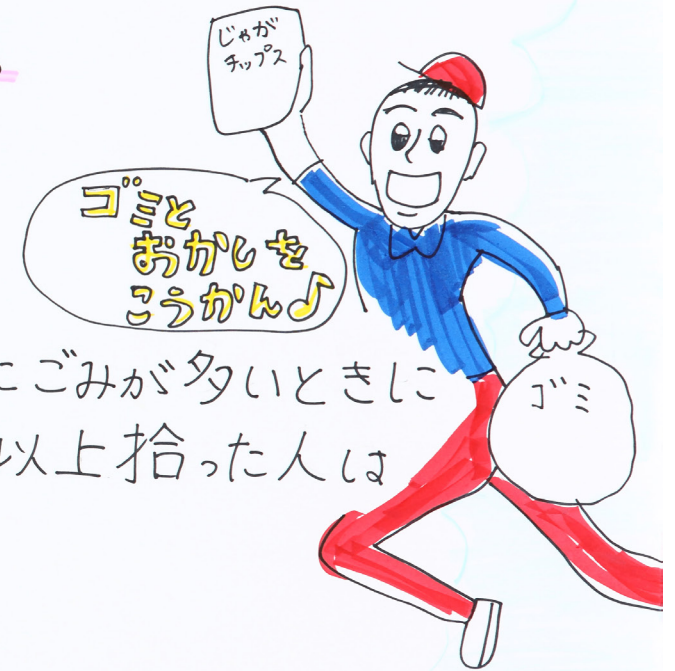 じゃが
チップス
ゴミと
おかしを
こうかん♪
にごみが多いときに
以上拾った人は
ゴミ